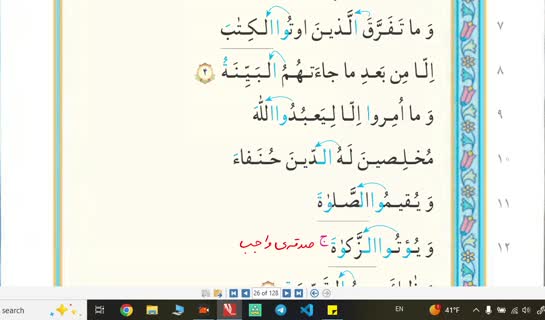 وَ ما تَفَرَّقَ الَّذينَ اوتُوا الكِتٰبَ ٧
اِلّا مِن بَعدِ ما جاءَتهُمُ البَيِّنَةُ ٤ ٨
وَ ما اُمِروا اِلّا لِيَعبُدُوا اللهَ ٩
مُخلِصينَ لَهُ الدّينَ حُنَفاءَ ١٠
وَ يُقيمُوا الصَّلوٰةَ ١١
وَ يُؤتُوا الزَّكوٰةَ ج صدقه‌ی واجب ١٢
26 of 128
search EN 41°F